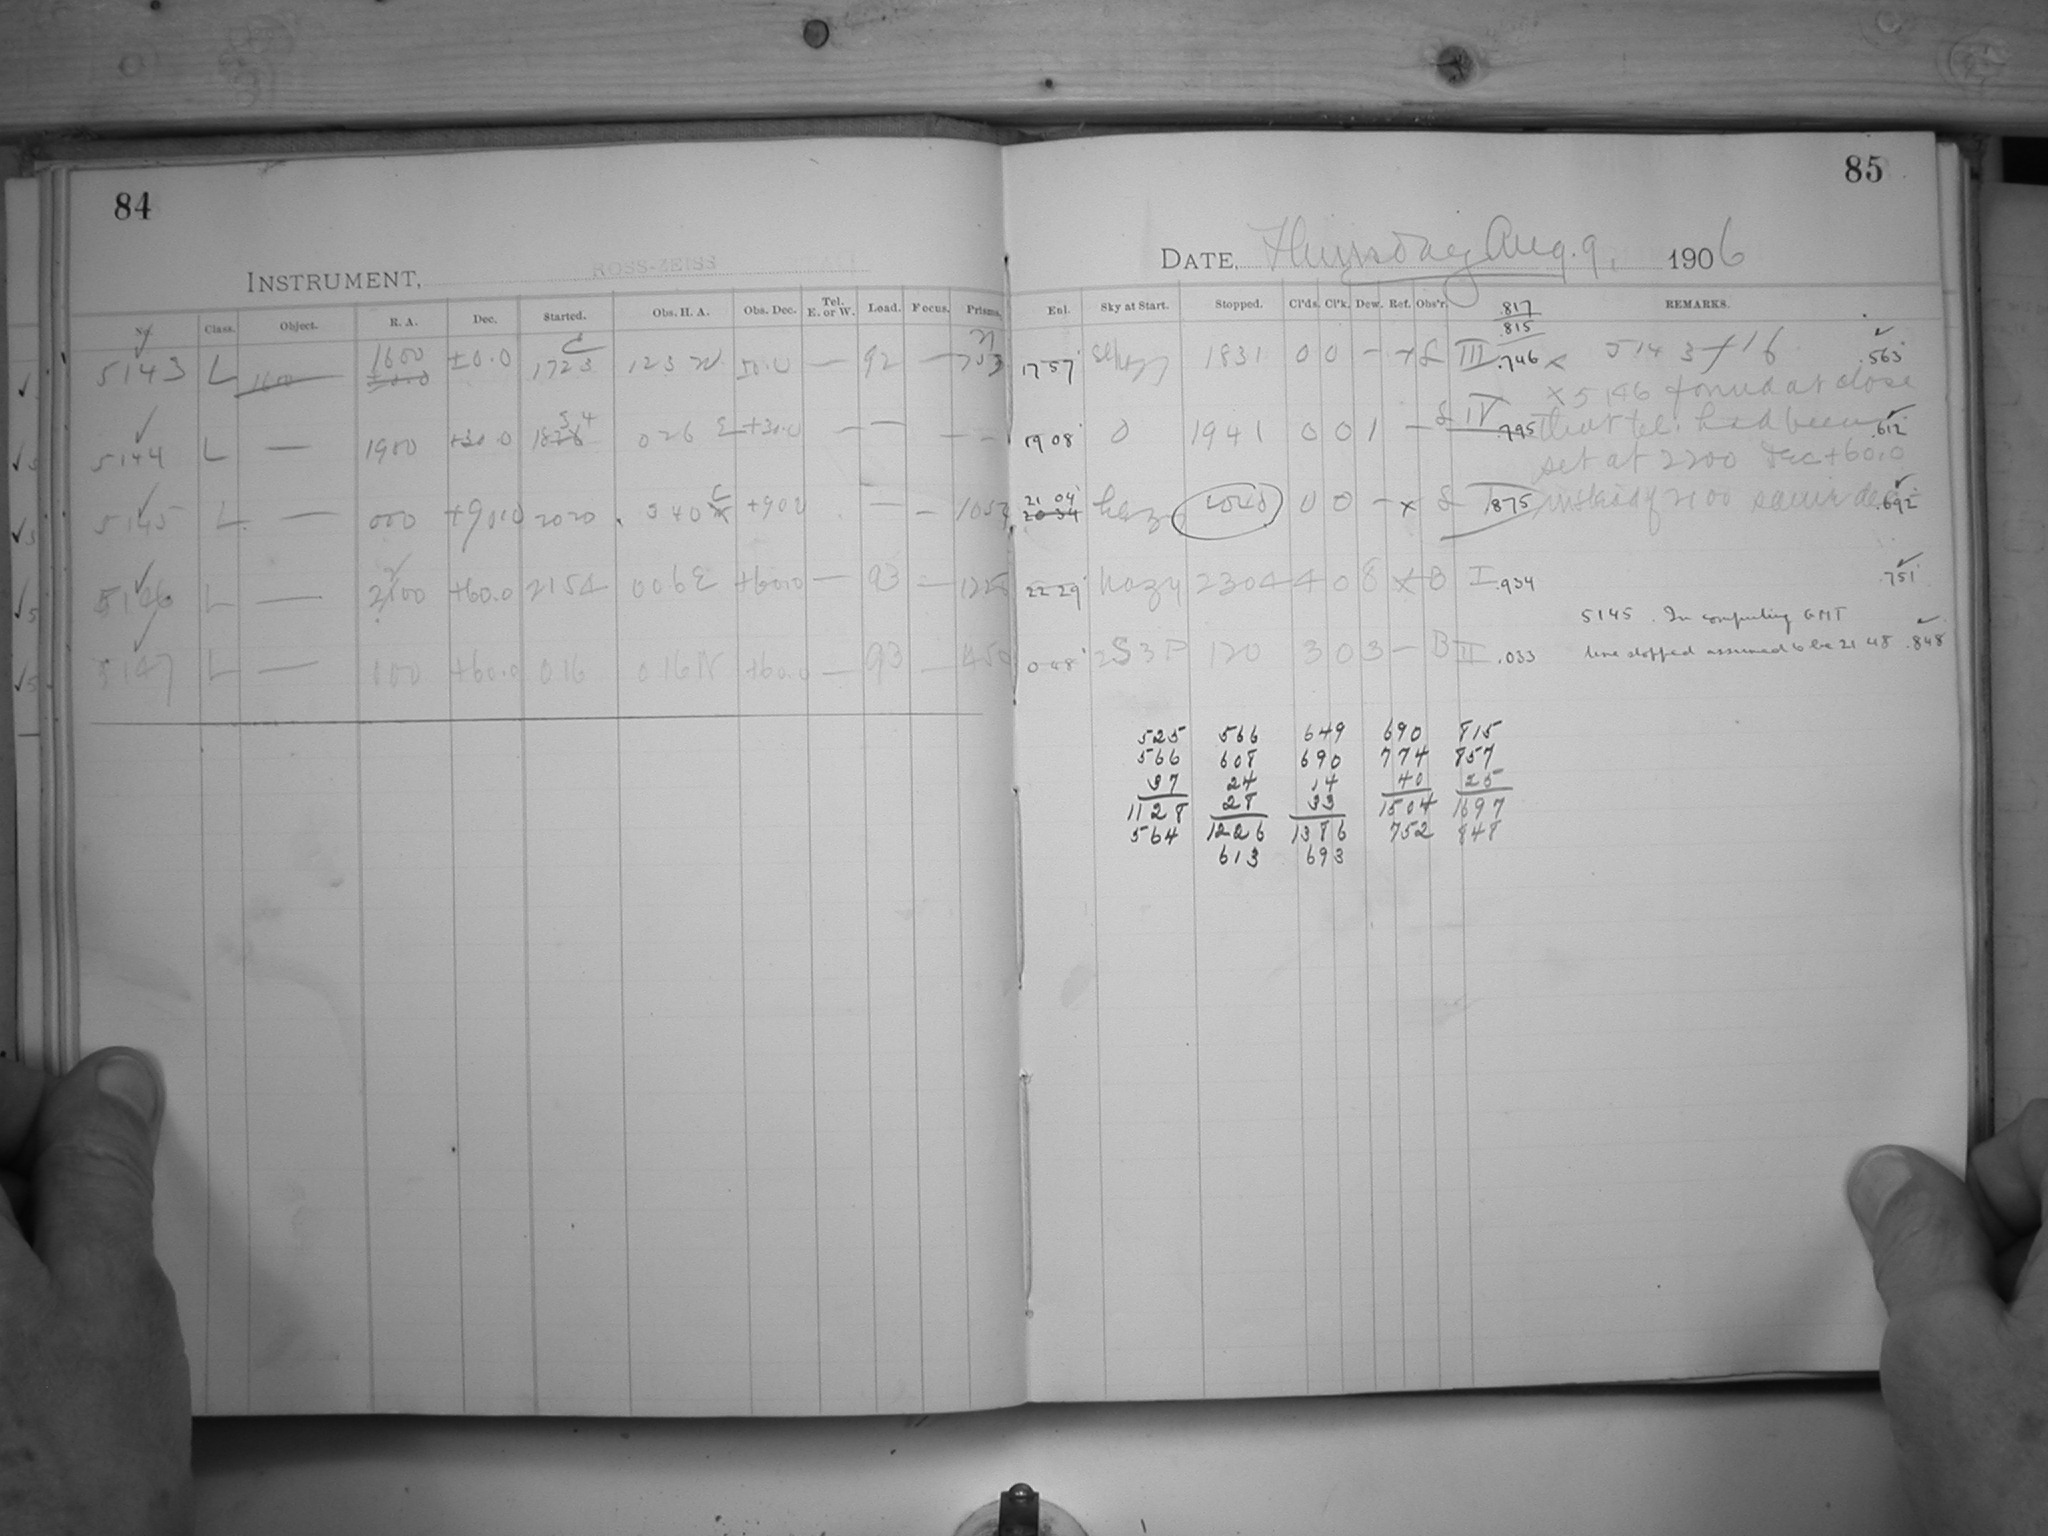 84
INSTRUMENT, ROSS-ZEISS
No. Class. Object. R. A. Dec. Started. Obs. H. A. Obs. Dec. Tel. E. or W. Load. Focus. Prisms.
5143 L 1600 ±0.0 1723 123 W ±0.0 — 92 —
5144 L — 1900 +30.0 026 E +30.0 — — — —
5145 L — 000 +90.0 2020 540 +900 — —
5146 L — 2100 +60.0 2154 006 E +60.0 — 93 —
5147 L — +60.0 016 016 W +60.0 — 93 —
85
DATE, Thursday Aug. 9, 1906
Enl. Sky at Start. Stopped. Cl'ds. Cl'k. Dew. Ref. Obs'r. REMARKS.
.817
.815
1757 1831 0 0 - x S III .746 x 5143 + 16 .563
x 5146 found at close
1908 0 1941 0 0 1 — S IV .795 that tel. had been .612
set at 2200 Dec +60.0
21 04
2034 hazy 0 0 - x S .875 instead of 2100 same dec .692
2229 hazy 2304 4 0 8 x B I .934 .751
5145. In computing GMT
048 2S3P 120 3 0 3 — B II .033 time stopped assumed to be 21 48 .848
525 566 649 690 815
566 608 690 774 857
37 24 14 40 25
1128 28 33 1504 1697
564 1226 1386 752 848
613 693